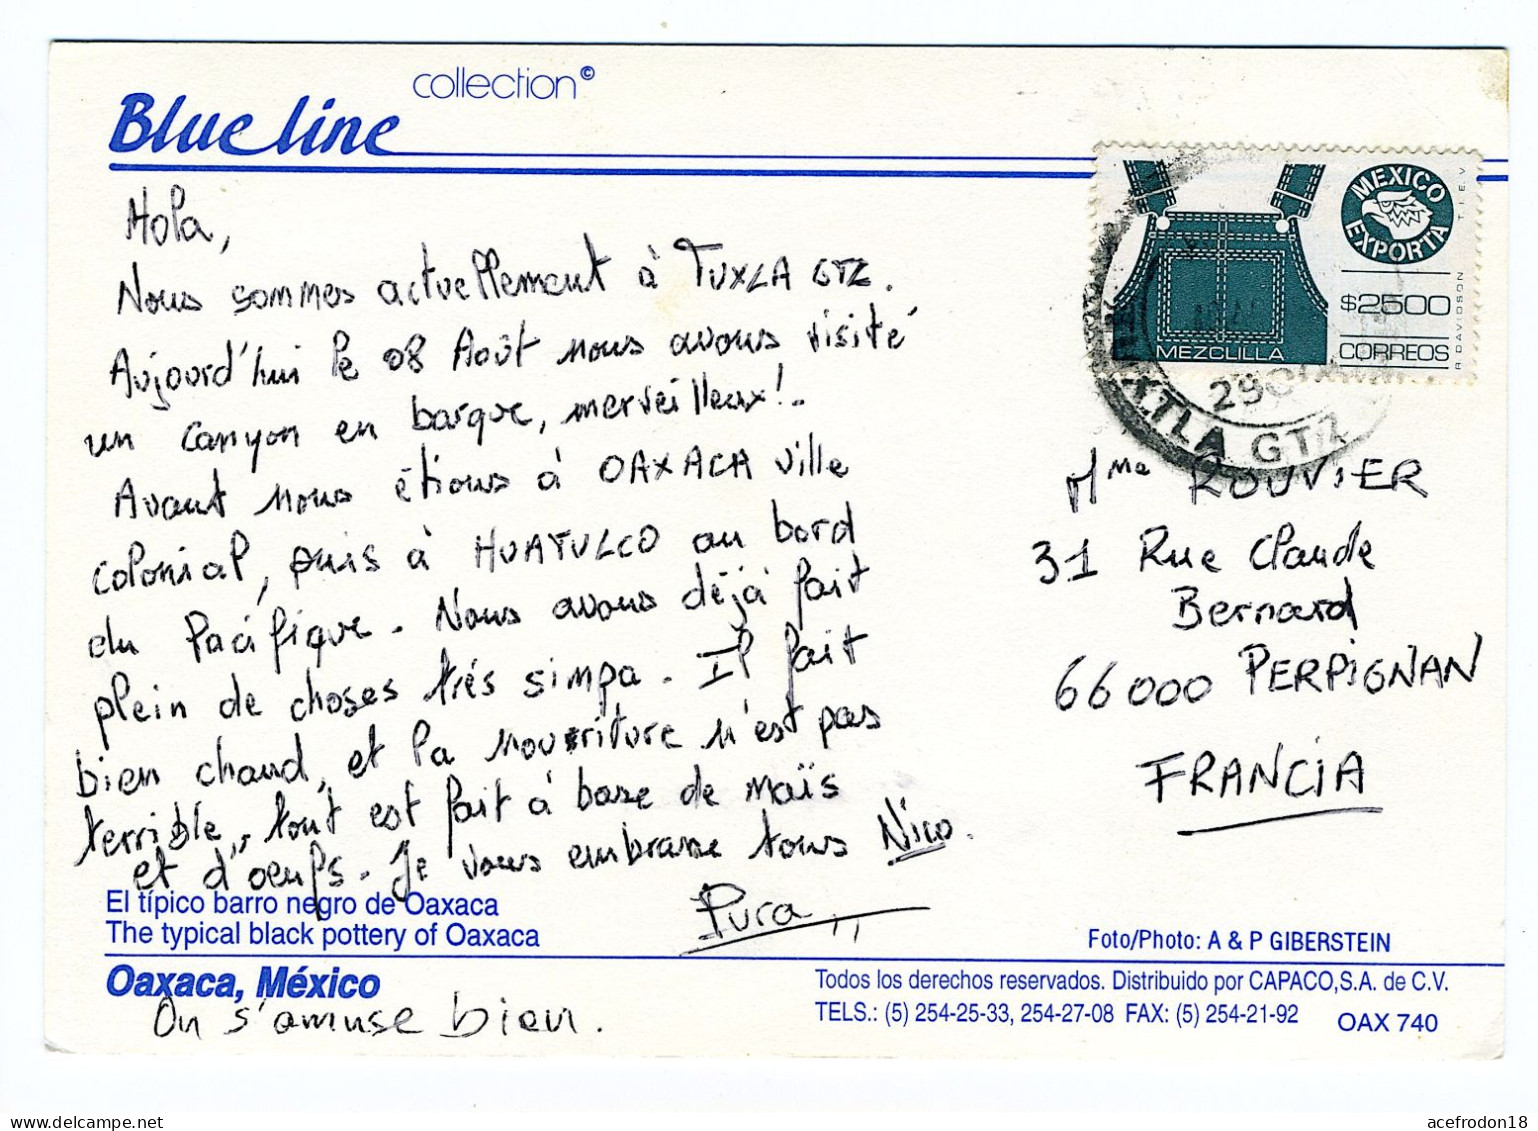 collection©
Blue line
Hola,
Nous sommes actuellement à TUXLA GTZ.
Aujourd'hui le 08 Août nous avons visité
un canyon en barque, merveilleux!.
Avant nous étions à OAXACA ville
colonial, puis à HUATULCO au bord
du Pacifique. Nous avons déjà fait
plein de choses très simpa. Il fait
bien chaud, et la nourriture n'est pas
terrible, tout est fait à base de maïs
et d'oeufs. Je vous embrasse tous Nico.
Pura
El típico barro negro de Oaxaca
The typical black pottery of Oaxaca
Oaxaca, México
On s'amuse bien.
MEXICO
EXPORTA
T.I.E.V.
R DAVIDSON
$2500
MEZCLILLA
CORREOS
XTLA GTZ
Mme ROUVIER
31 Rue Claude
Bernard
66000 PERPIGNAN
FRANCIA
Foto/Photo: A & P GIBERSTEIN
Todos los derechos reservados. Distribuido por CAPACO,S.A. de C.V.
TELS.: (5) 254-25-33, 254-27-08 FAX: (5) 254-21-92
OAX 740
acefrodon18